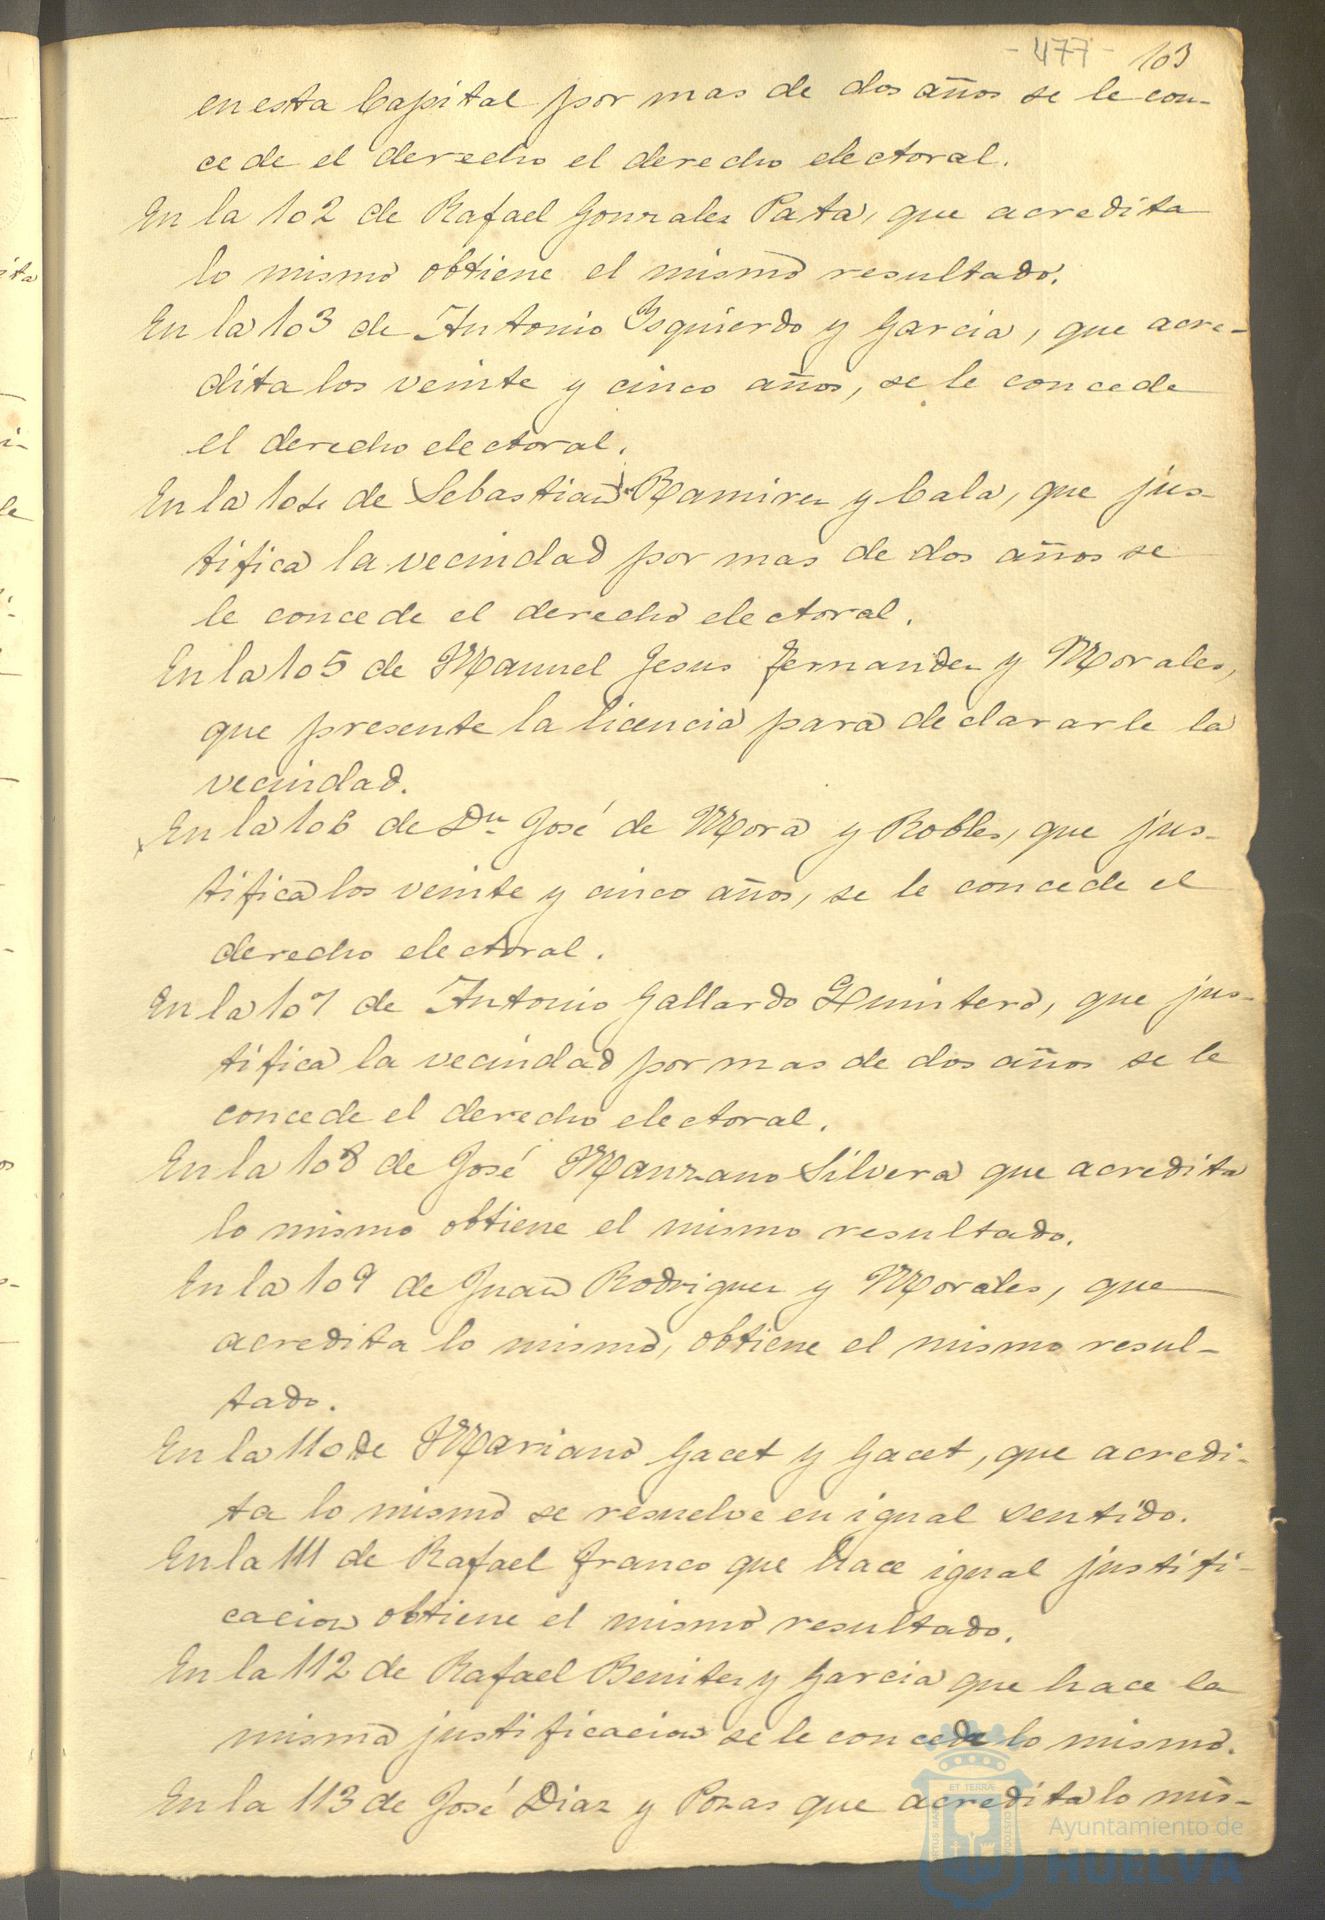 - 477 - 103
en esta Capital por mas de dos años se le con-
cede el derecho el derecho electoral.
En la 102 de Rafael Gonzalez Pata, que acredita
lo mismo obtiene el mismo resultado.
En la 103 de Antonio Izquierdo y Garcia, que acre-
dita los veinte y cinco años, se le concede
el derecho electoral.
En la 104 de Sebastian Ramirez y Cala, que jus-
tifica la vecindad por mas de dos años se
le concede el derecho electoral.
En la 105 de Manuel Jesus Fernandez y Morales,
que presente la licencia para declararle la
vecindad.
En la 106 de Dn José de Mora y Robles, que jus-
tifica los veinte y cinco años, se le concede el
derecho electoral.
En la 107 de Antonio Gallardo Quintero, que jus-
tifica la vecindad por mas de dos años se le
concede el derecho electoral.
En la 108 de José Manzano Silvera que acredita
lo mismo obtiene el mismo resultado.
En la 109 de Juan Rodriguez y Morales, que
acredita lo mismo, obtiene el mismo resul-
tado.
En la 110 de Mariano Gacet y Gacet, que acredi-
ta lo mismo se resuelve en igual sentido.
En la 111 de Rafael Franco que hace igual justifi-
cacion obtiene el mismo resultado.
En la 112 de Rafael Benitez y Garcia que hace la
misma justificacion se le concede lo mismo.
En la 113 de José Diaz y Pozas que acredita lo mis-
ET TERRÆ
Ayuntamiento de
HUELVA